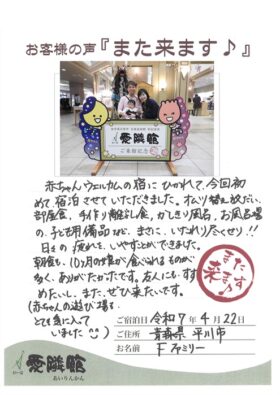 お客様の声『また来ます♪』
愛隣館
ご来館記念
赤ちゃんウェルカムの宿にひかれて、今回初
めて宿泊させていただきました。オムツ替え放だい、
部屋食、手作り離乳食、かしきり風呂、お風呂場
の、子ども用備品など、まさに、いたれりつくせり!!
日々の疲れを、いやすことができました。
朝食も、10ヶ月の娘が食べれるものが
多く、ありがたかったです。友人にも、すす
めたいし、また、ぜひ来たいです。
(赤ちゃんの遊び場を、
とても気に入って
いました)
また来ますよ
ご宿泊日 令和7年4月22日
ご住所 青森県平川市
お名前 Fファミリー
愛隣館
あいりんかん